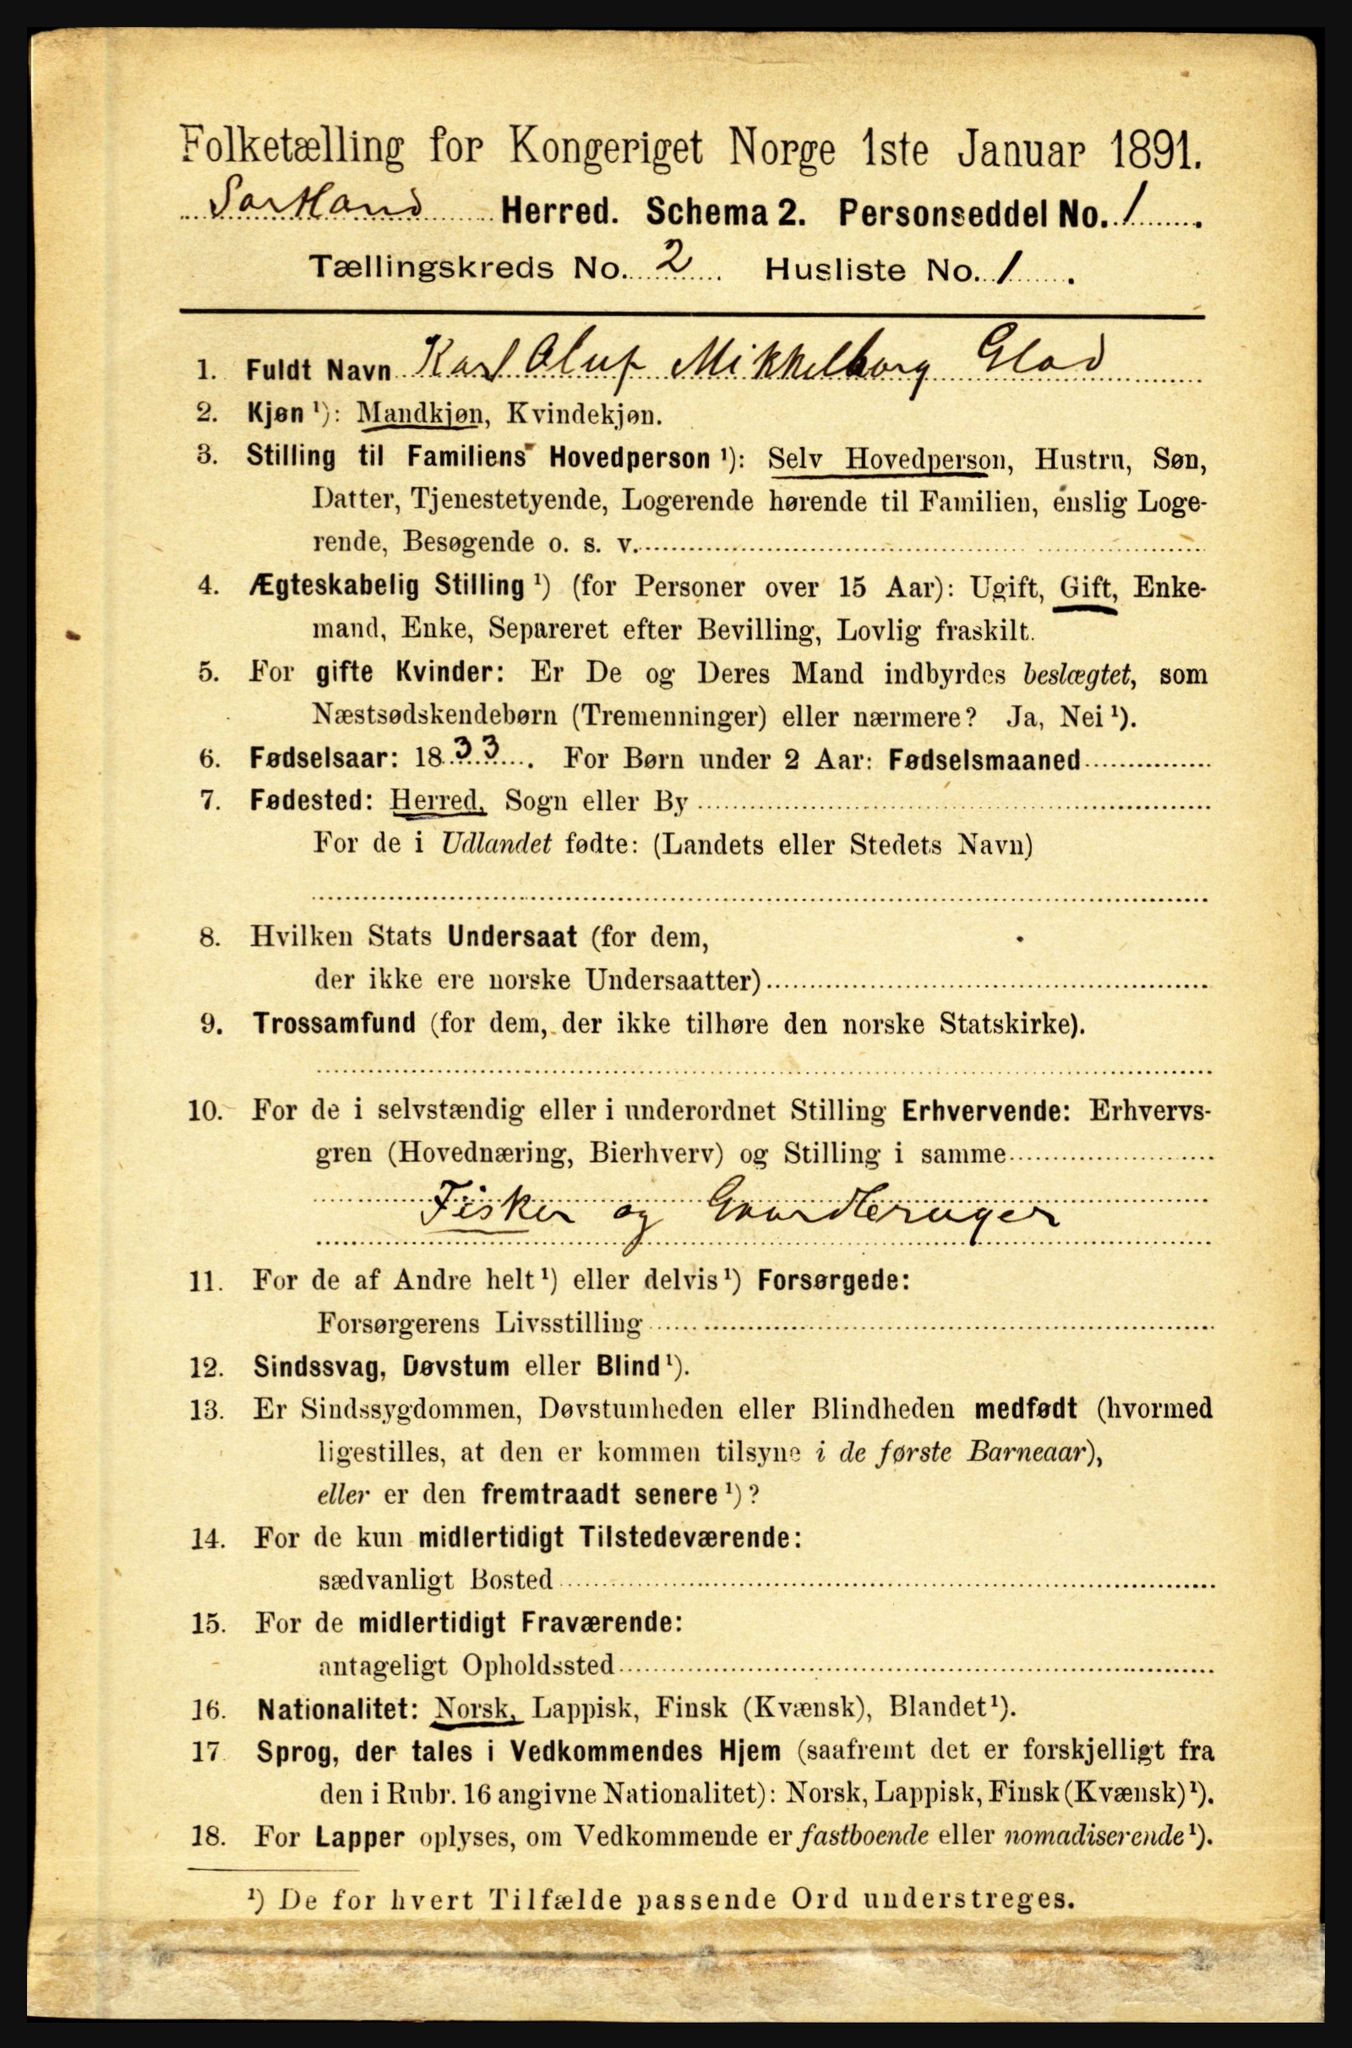 Folketælling for Kongeriget Norge 1ste Januar 1891.
Sortland Herred. Schema 2. Personseddel No. 1.
Tællingskreds No. 2 Husliste No. 1.
1. Fuldt Navn Karl Oluf Mikkelborg Glad
2. Kjøn ¹): Mandkjøn, Kvindekjøn.
3. Stilling til Familiens Hovedperson ¹): Selv Hovedperson, Hustru, Søn,
Datter, Tjenestetyende, Logerende hørende til Familien, enslig Loge-
rende, Besøgende o. s. v.
4. Ægteskabelig Stilling ¹) (for Personer over 15 Aar): Ugift, Gift, Enke-
mand, Enke, Separeret efter Bevilling, Lovlig fraskilt.
5. For gifte Kvinder: Er De og Deres Mand indbyrdes beslægtet, som
Næstsødskendebørn (Tremenninger) eller nærmere? Ja, Nei ¹).
6. Fødselsaar: 1833. For Børn under 2 Aar: Fødselsmaaned
7. Fødested: Herred, Sogn eller By
For de i Udlandet fødte: (Landets eller Stedets Navn)
8. Hvilken Stats Undersaat (for dem,
der ikke ere norske Undersaatter)
9. Trossamfund (for dem, der ikke tilhøre den norske Statskirke).
10. For de i selvstændig eller i underordnet Stilling Erhvervende: Erhvervs-
gren (Hovednæring, Bierhverv) og Stilling i samme
Fisker og Gaardbruger
11. For de af Andre helt ¹) eller delvis ¹) Forsørgede:
Forsørgerens Livsstilling
12. Sindssvag, Døvstum eller Blind ¹).
13. Er Sindssygdommen, Døvstumheden eller Blindheden medfødt (hvormed
ligestilles, at den er kommen tilsyne i de første Barneaar),
eller er den fremtraadt senere ¹)?
14. For de kun midlertidigt Tilstedeværende:
sædvanligt Bosted
15. For de midlertidigt Fraværende:
antageligt Opholdssted
16. Nationalitet: Norsk, Lappisk, Finsk (Kvænsk), Blandet ¹).
17 Sprog, der tales i Vedkommendes Hjem (saafremt det er forskjelligt fra
den i Rubr. 16 angivne Nationalitet): Norsk, Lappisk, Finsk (Kvænsk) ¹).
18. For Lapper oplyses, om Vedkommende er fastboende eller nomadiserende ¹).
¹) De for hvert Tilfælde passende Ord understreges.